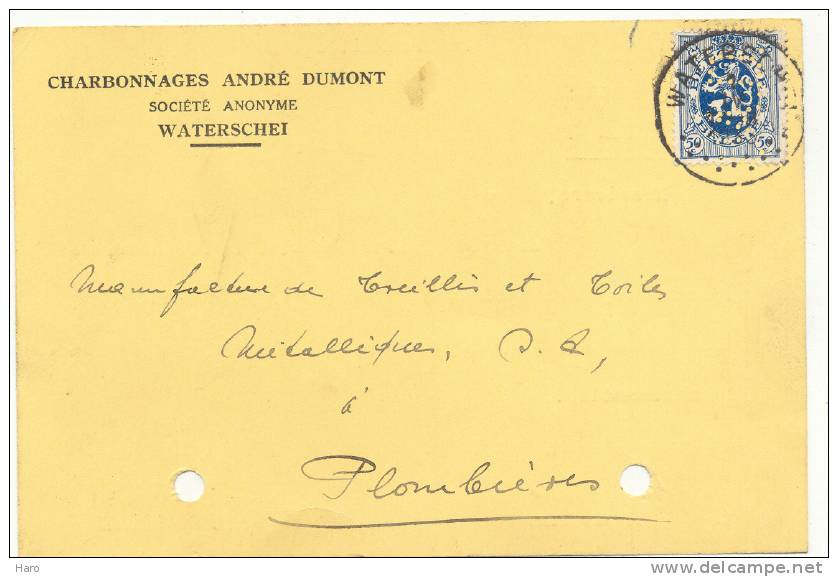 CHARBONNAGES ANDRÉ DUMONT
SOCIÉTÉ ANONYME
WATERSCHEI
WATERSCHEI
BELGIE
BELGIQUE
50 50
Manufacture de Treillis et Toiles
Métalliques, S. A,
à
Plombières
Haro
www.delcampe.net